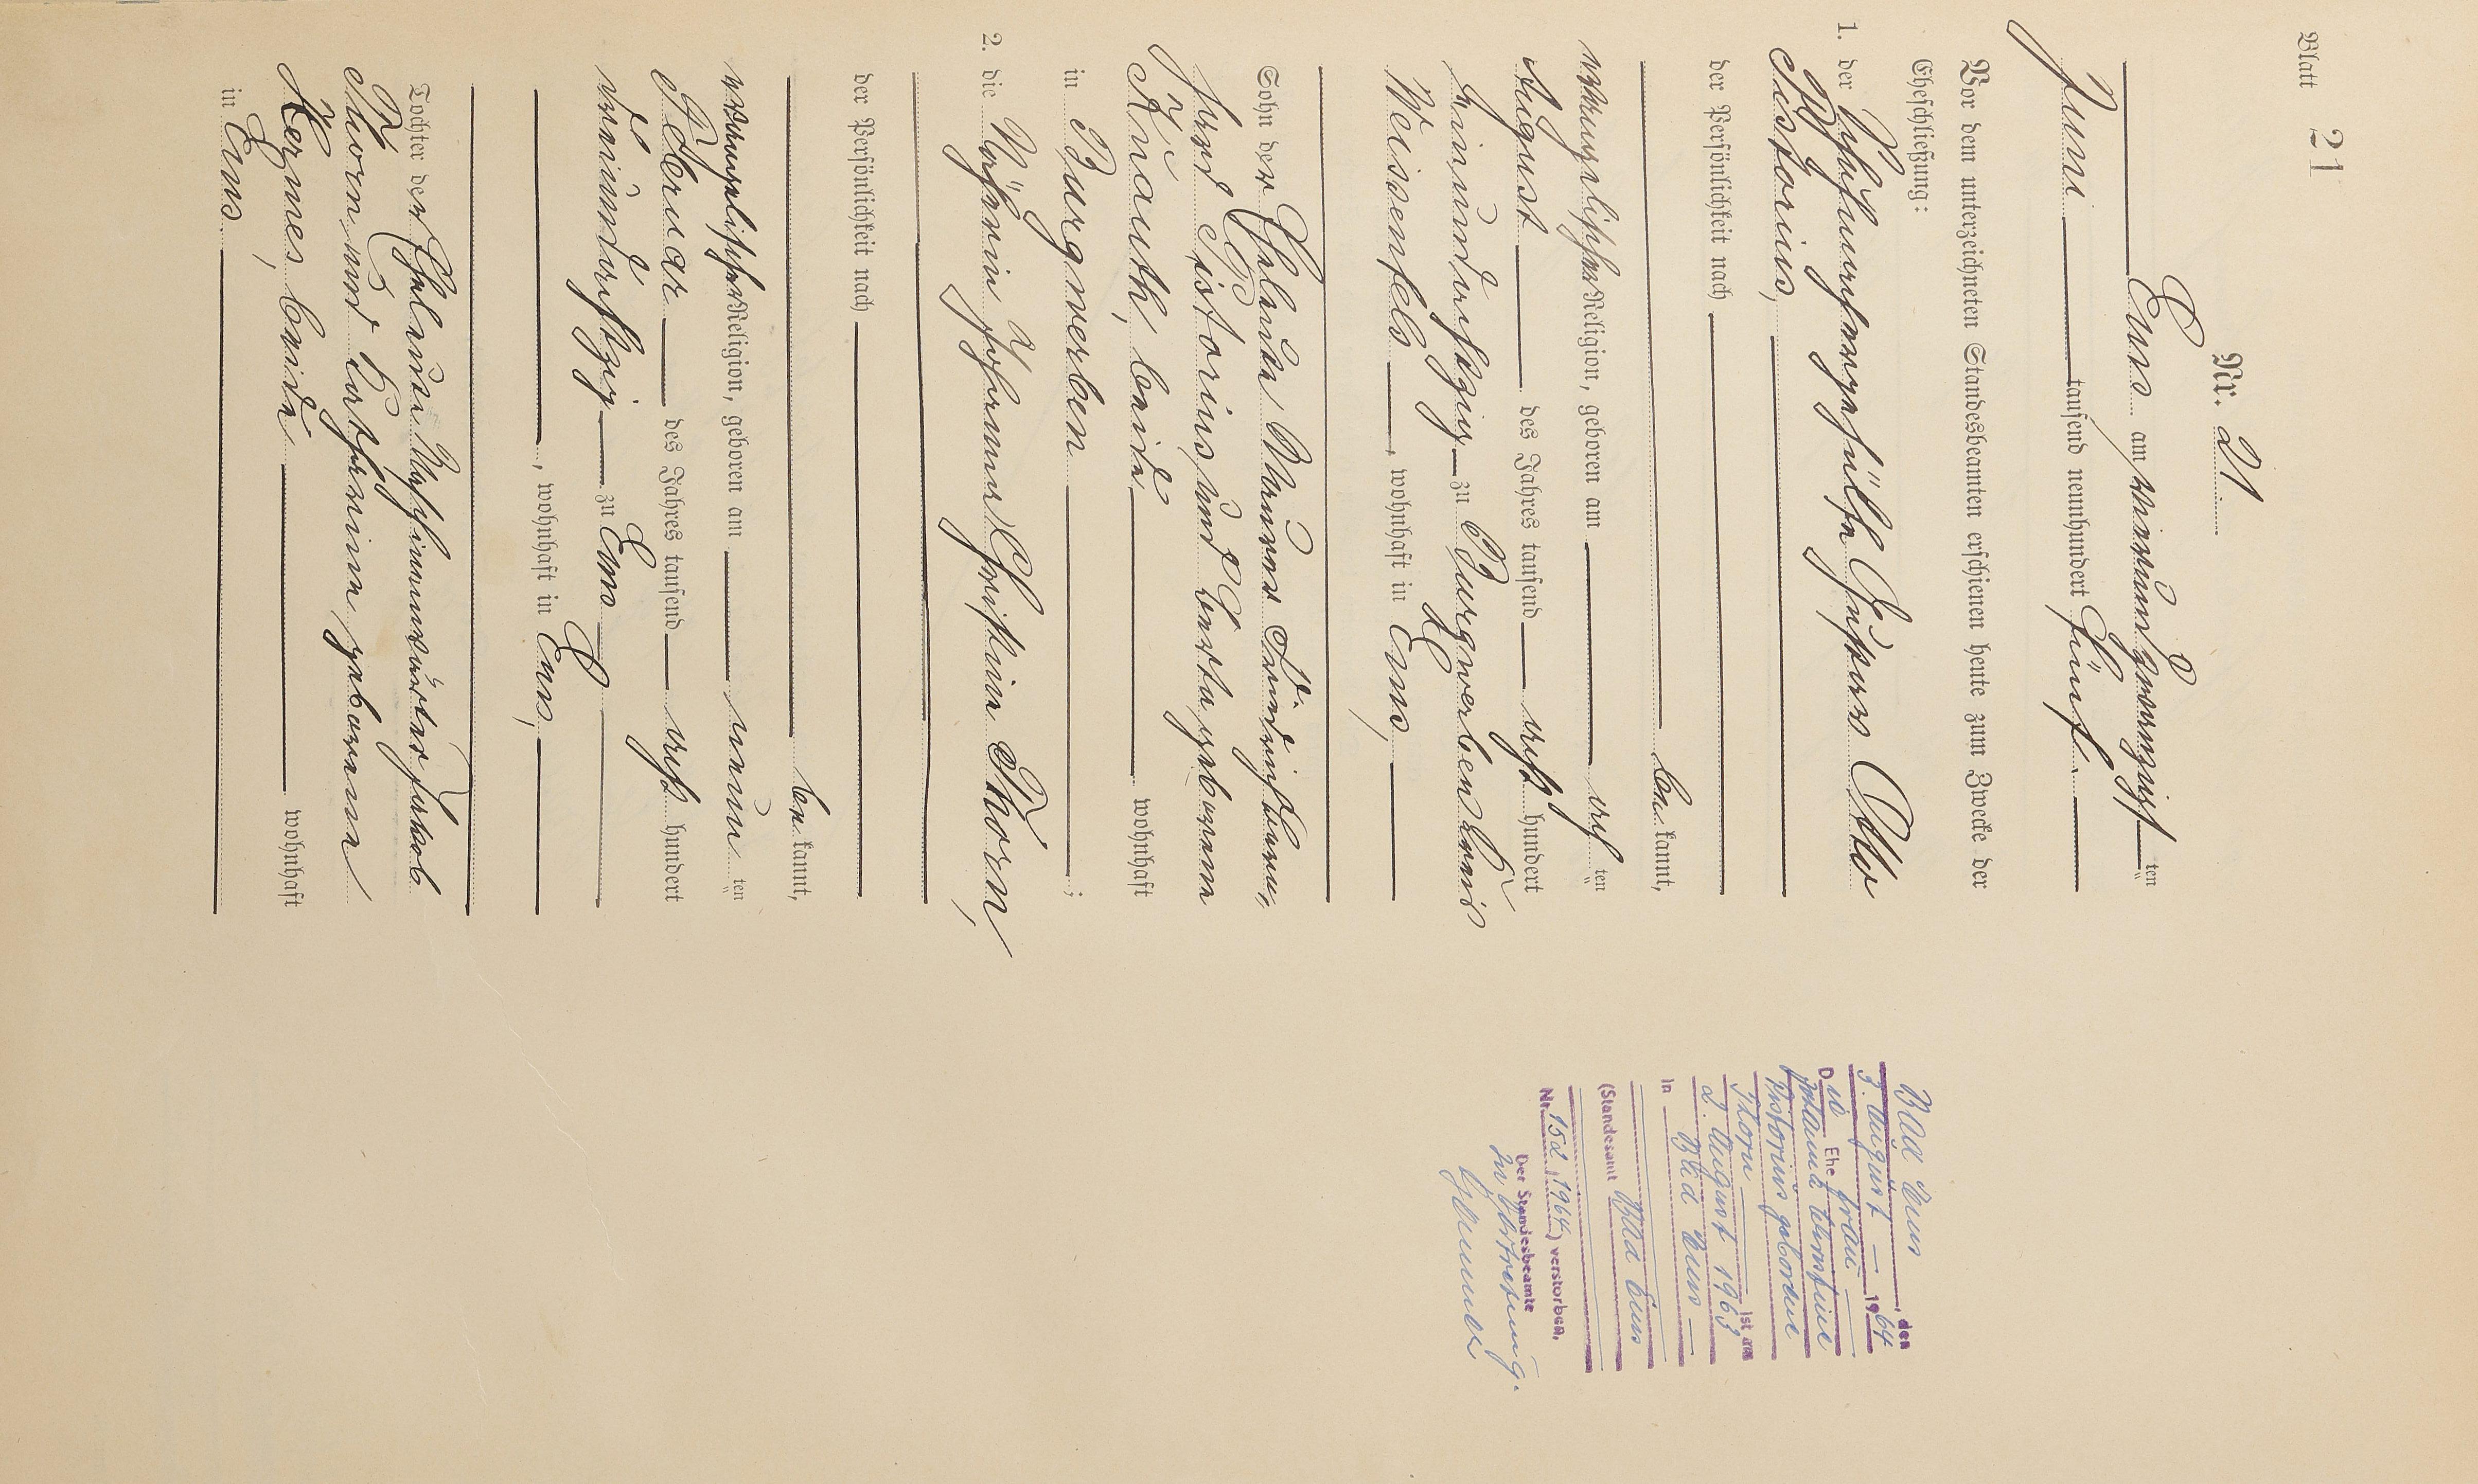 Blatt 21
Nr. 21.
Ems am vierundzwanzigsten
Juni tausend neunhundert fünf.
Vor dem unterzeichneten Standesbeamten erschienen heute zum Zwecke der
Eheschließung:
1. der Schuhmachergehülfe Gustav Otto
Pistorius,
der Persönlichkeit nach
be kannt,
evangelischer Religion, geboren am acht ten
August des Jahres tausend acht hundert
einundachtzig zu Burgwerben Kreis
Weissenfels, wohnhaft in Ems,
Sohn der Eheleute Maurer Friedrich
Pistorius und Berta geborenen
Knauth, beide wohnhaft
in Burgwerben;
2. die Näherin Johanna Christine Thorn,
der Persönlichkeit nach
be kannt,
evangelischer Religion, geboren am neun ten
Februar des Jahres tausend acht hundert
vierundachtzig zu Ems
, wohnhaft in Ems,
Tochter der Eheleute Maschinenwärter Jakob
Thorn und Katharina geborenen
Hermes, beide wohnhaft
in Ems.
Bad Ems, den
3. August 1964
Die Ehefrau
Johanna Christine
Pistorius geborene
Thorn ist am
2. August 1963
in Bad Ems
(Standesamt Bad Ems
Nr. 152/1964) verstorben.
Der Standesbeamte
In Vertretung.